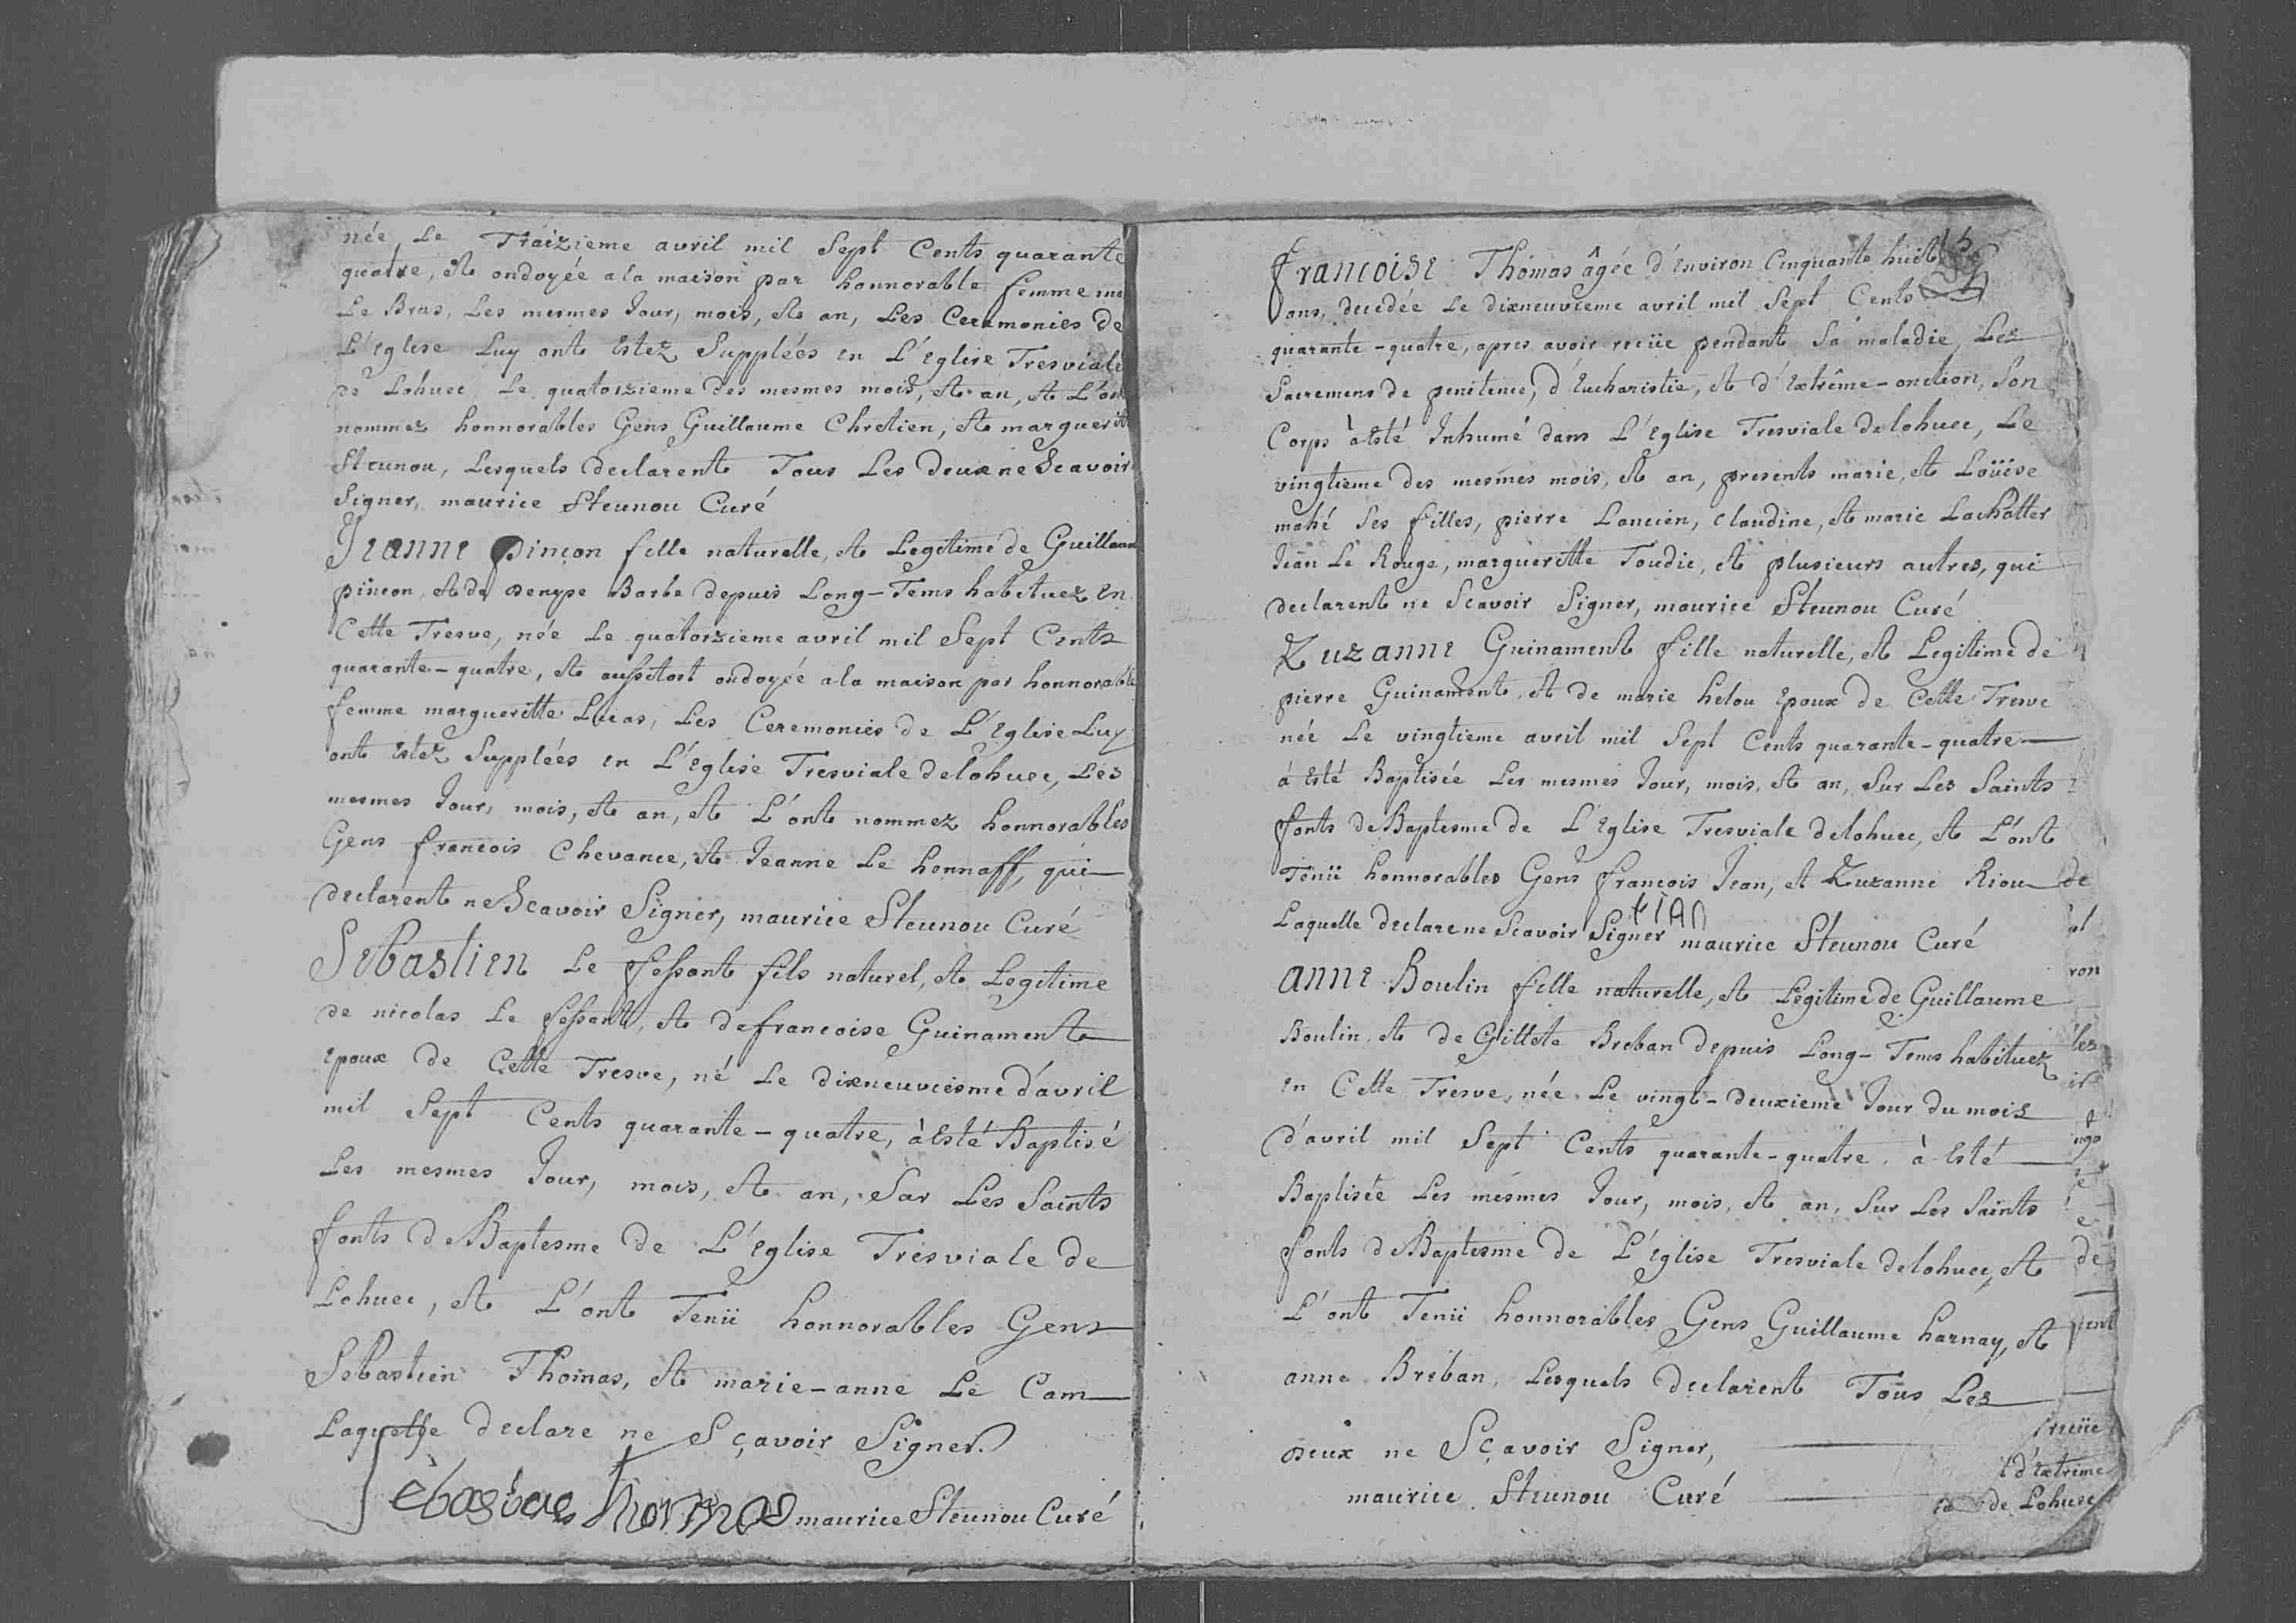 née Le Traizieme avril mil Sept Cents quarante
quatre, et ondoyée a la maison par honnorable femme
Le Bras, Les mesmes Jour, mois, et an, Les Ceremonies de
L'Eglise Luy ont Estez Suppléés en L'Eglise Tresviale
de Lohuec Le quatorzieme des mesmes mois, et an, et L'ont
nommez honnorables Gens Guillaume Chretien, et margueritte
Steunou, Lesquels declarent Tous Les deux ne Scavoir
Signer, maurice Steunou Curé
Jeanne pincon fille naturelle, et Legitime de Guillaume
pincon, et de Denype Barbe depuis Long-Tems habituez en
Cette Tresve, née Le quatorzieme avril mil Sept Cents
quarante-quatre, et aussitost ondoyée a la maison par honnorable
femme margueritte Lucas, Les Ceremonies de L'Eglise Luy
ont Estez Suppléés en L'Eglise Tresviale de lohuec, Les
mesmes Jour, mois, et an, et L'ont nommez honnorables
Gens francois Chevance, et Jeanne Le honnaff, qui
declarent ne Scavoir Signer, maurice Steunou Curé
Sebastien Le fessant fils naturel, et Legitime
de nicolas Le fessant, et de francoise Guinament
Epoux de Cette Tresve, né Le dixneuviesme d'avril
mil Sept Cents quarante-quatre, à Esté Baptisé
Les mesmes Jour, mois, et an, Sur Les Saints
fonts de Baptesme de L'Eglise Tresviale de
Lohuec, et L'ont Tenü honnorables Gens
Sebastien Thomas, et marie-anne Le Cam
Laquelle declare ne Sçavoir Signer
Sebastien Thomas maurice Steunou Curé
francoise Thomas âgée d'environ Cinquante huit
ans, decedée Le dixneuvieme avril mil Sept Cents
quarante-quatre, apres avoir recüe pendant Sa maladie Les
Sacremens de penitence, d'Eucharistie, et d'Extrême-onction, Son
Corps à Esté Inhumé dans L'Eglise Tresviale de lohuec, Le
vingtieme des mesmes mois, et an, presents marie, et Loüise
mahé Ses filles, pierre Lancien, claudine, et marie Lachatter
Jean Le Rouge, margueritte Toudic, et plusieurs autres, qui
declarent ne Scavoir Signer, maurice Steunou Curé
Zuzanne Guinament fille naturelle, et Legitime de
pierre Guinament, et de marie helou Epoux de Cette Tresve
née Le vingtieme avril mil Sept Cents quarante-quatre
à Esté Baptisée Les mesmes Jour, mois, et an, Sur Les Saints
fonts de Baptesme de L'Eglise Tresviale de lohuec, et L'ont
Tenü honnorables Gens francois Jean, et Zuzanne Riou
Laquelle declare ne Scavoir Signer maurice Steunou Curé
anne Boulin fille naturelle, et Legitime de Guillaume
Boulin, et de Gillete Breban depuis Long-Tems habituez
en Cette Tresve, née Le vingt-deuxieme Jour du mois
d'avril mil Sept Cents quarante-quatre, à Esté
Baptisée Les mesmes Jour, mois, et an, Sur Les Saints
fonts de Baptesme de L'Eglise Tresviale de lohuec, et
L'ont Tenü honnorables Gens Guillaume harnay, et
anne Breban, Lesquels declarent Tous Les
Deux ne Sçavoir Signer,
maurice Steunou Curé
de
ron
les
de
recüe
d'Extrême
de Lohuec